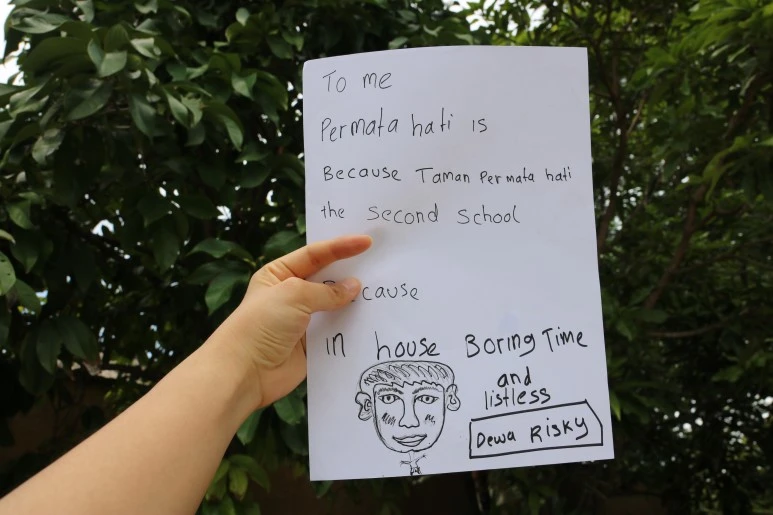 To me
Permata hati is
Because Taman Permata hati
the second school
cause
in house Boring Time
and
listless
Dewa Risky